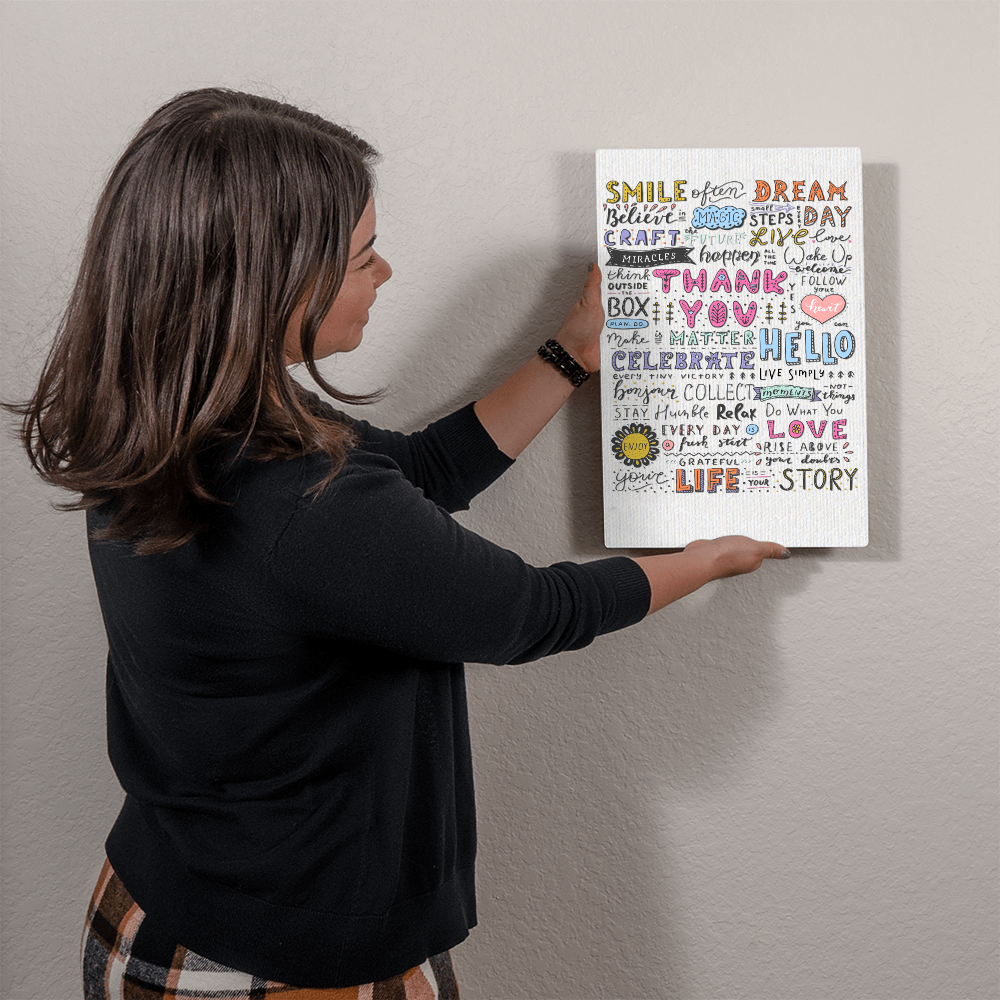 SMILE often DREAM
Believe in MAGIC small STEPS EVERY DAY
CRAFT the FUTURE LIVE love
MIRACLES happen ALL THE TIME Wake Up
think welcome
OUTSIDE THANK FOLLOW
THE YOU YES your
BOX heart
PLAN. DO you can
Make it MATTER HELLO
CELEBRATE
every TINY VICTORY LIVE SIMPLY
bonjour COLLECT moments NOT things
STAY Humble Relax Do What You
ENJOY EVERY DAY is LOVE
a fresh start RISE ABOVE
GRATEFUL your doubts
your LIFE IS YOUR STORY